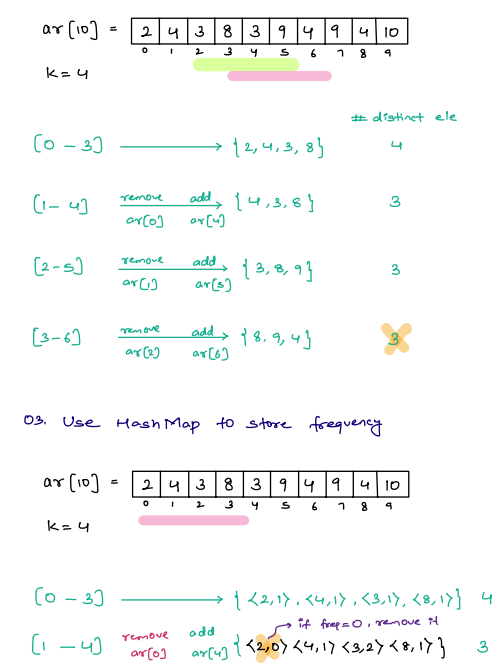 ar[10] = 2 4 3 8 3 9 4 9 4 10
0 1 2 3 4 5 6 7 8 9
K = 4
# distinct ele
[0 - 3] → {2, 4, 3, 8} 4
[1 - 4] remove ar[0] add ar[4] → {4, 3, 8} 3
[2 - 5] remove ar[1] add ar[5] → {3, 8, 9} 3
[3 - 6] remove ar[2] add ar[6] → {8. 9, 4} 3
03. Use HashMap to store frequency
ar[10] = 2 4 3 8 3 9 4 9 4 10
0 1 2 3 4 5 6 7 8 9
K = 4
[0 - 3] → {<2,1>, <4,1>, <3,1>, <8,1>} 4
→ if freq=0, remove it
[1 - 4] remove ar[0] add ar[4] {<2,0> <4,1> <3,2> <8,1>} 3